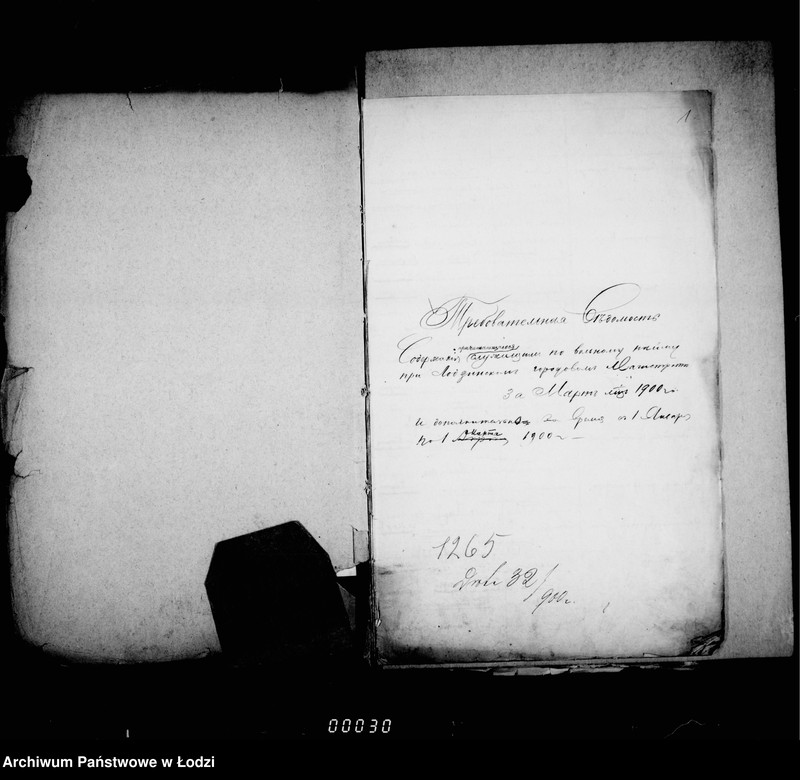 1
Требовательная Вѣдомость
причитающагося
Содержанія служащимъ по вольному найму
при Лодзинскомъ городовомъ Магистратѣ
За Мартъ мцъ 1900 г.
и дополнительно за время съ 1 Января
Марта
по 1 1900 г.
1265
32/900 г.
00030
Archiwum Państwowe w Łodzi